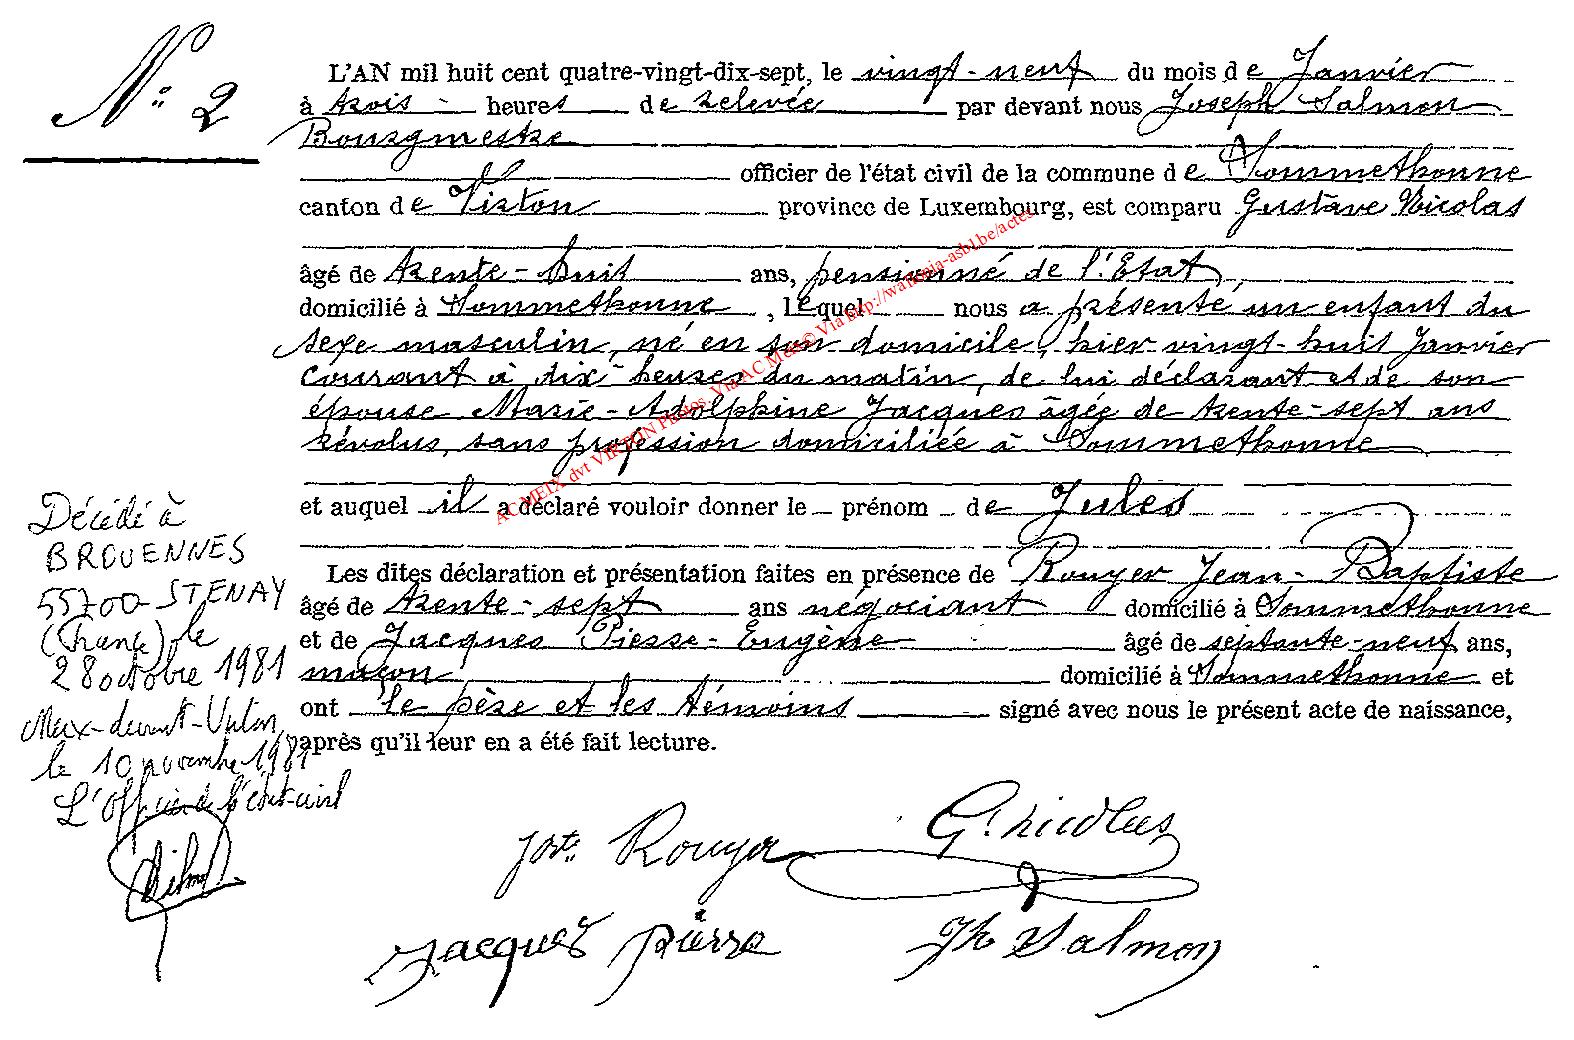 N° 2
L'AN mil huit cent quatre-vingt-dix-sept, le vingt-neuf du mois de Janvier
à trois heures de relevée par devant nous Joseph Salmon
Bourgmestre
officier de l'état civil de la commune de Sommethonne
canton de Virton province de Luxembourg, est comparu Gustave Nicolas
âgé de trente-huit ans, pensionné de l'Etat,
domicilié à Sommethonne, lequel nous a présenté un enfant du
sexe masculin, né en son domicile, hier vingt-huit Janvier
courant à dix heures du matin, de lui déclarant et de son
épouse Marie-Adolphine Jacques âgée de trente-sept ans
révolus, sans profession domiciliée à Sommethonne
et auquel il a déclaré vouloir donner le prénom de Jules
Les dites déclaration et présentation faites en présence de Rouyer Jean-Baptiste
âgé de trente-sept ans négociant domicilié à Sommethonne
et de Jacques Pierre-Eugène âgé de septante-neuf ans,
maçon domicilié à Sommethonne et
ont le père et les témoins signé avec nous le présent acte de naissance,
après qu'il leur en a été fait lecture.
Décédé à
BROUENNES
55700 STENAY
(France) le
28 octobre 1981
Meix-devant-Virton,
le 10 novembre 1981
L'Officier de l'état-civil
Jbte Rouyer G. Nicolas
Jacques pierre Jh Salmon
AC MEIX dvt VIRTON Photos Via AC Meix© Via http://wallonia-asbl.be/actes